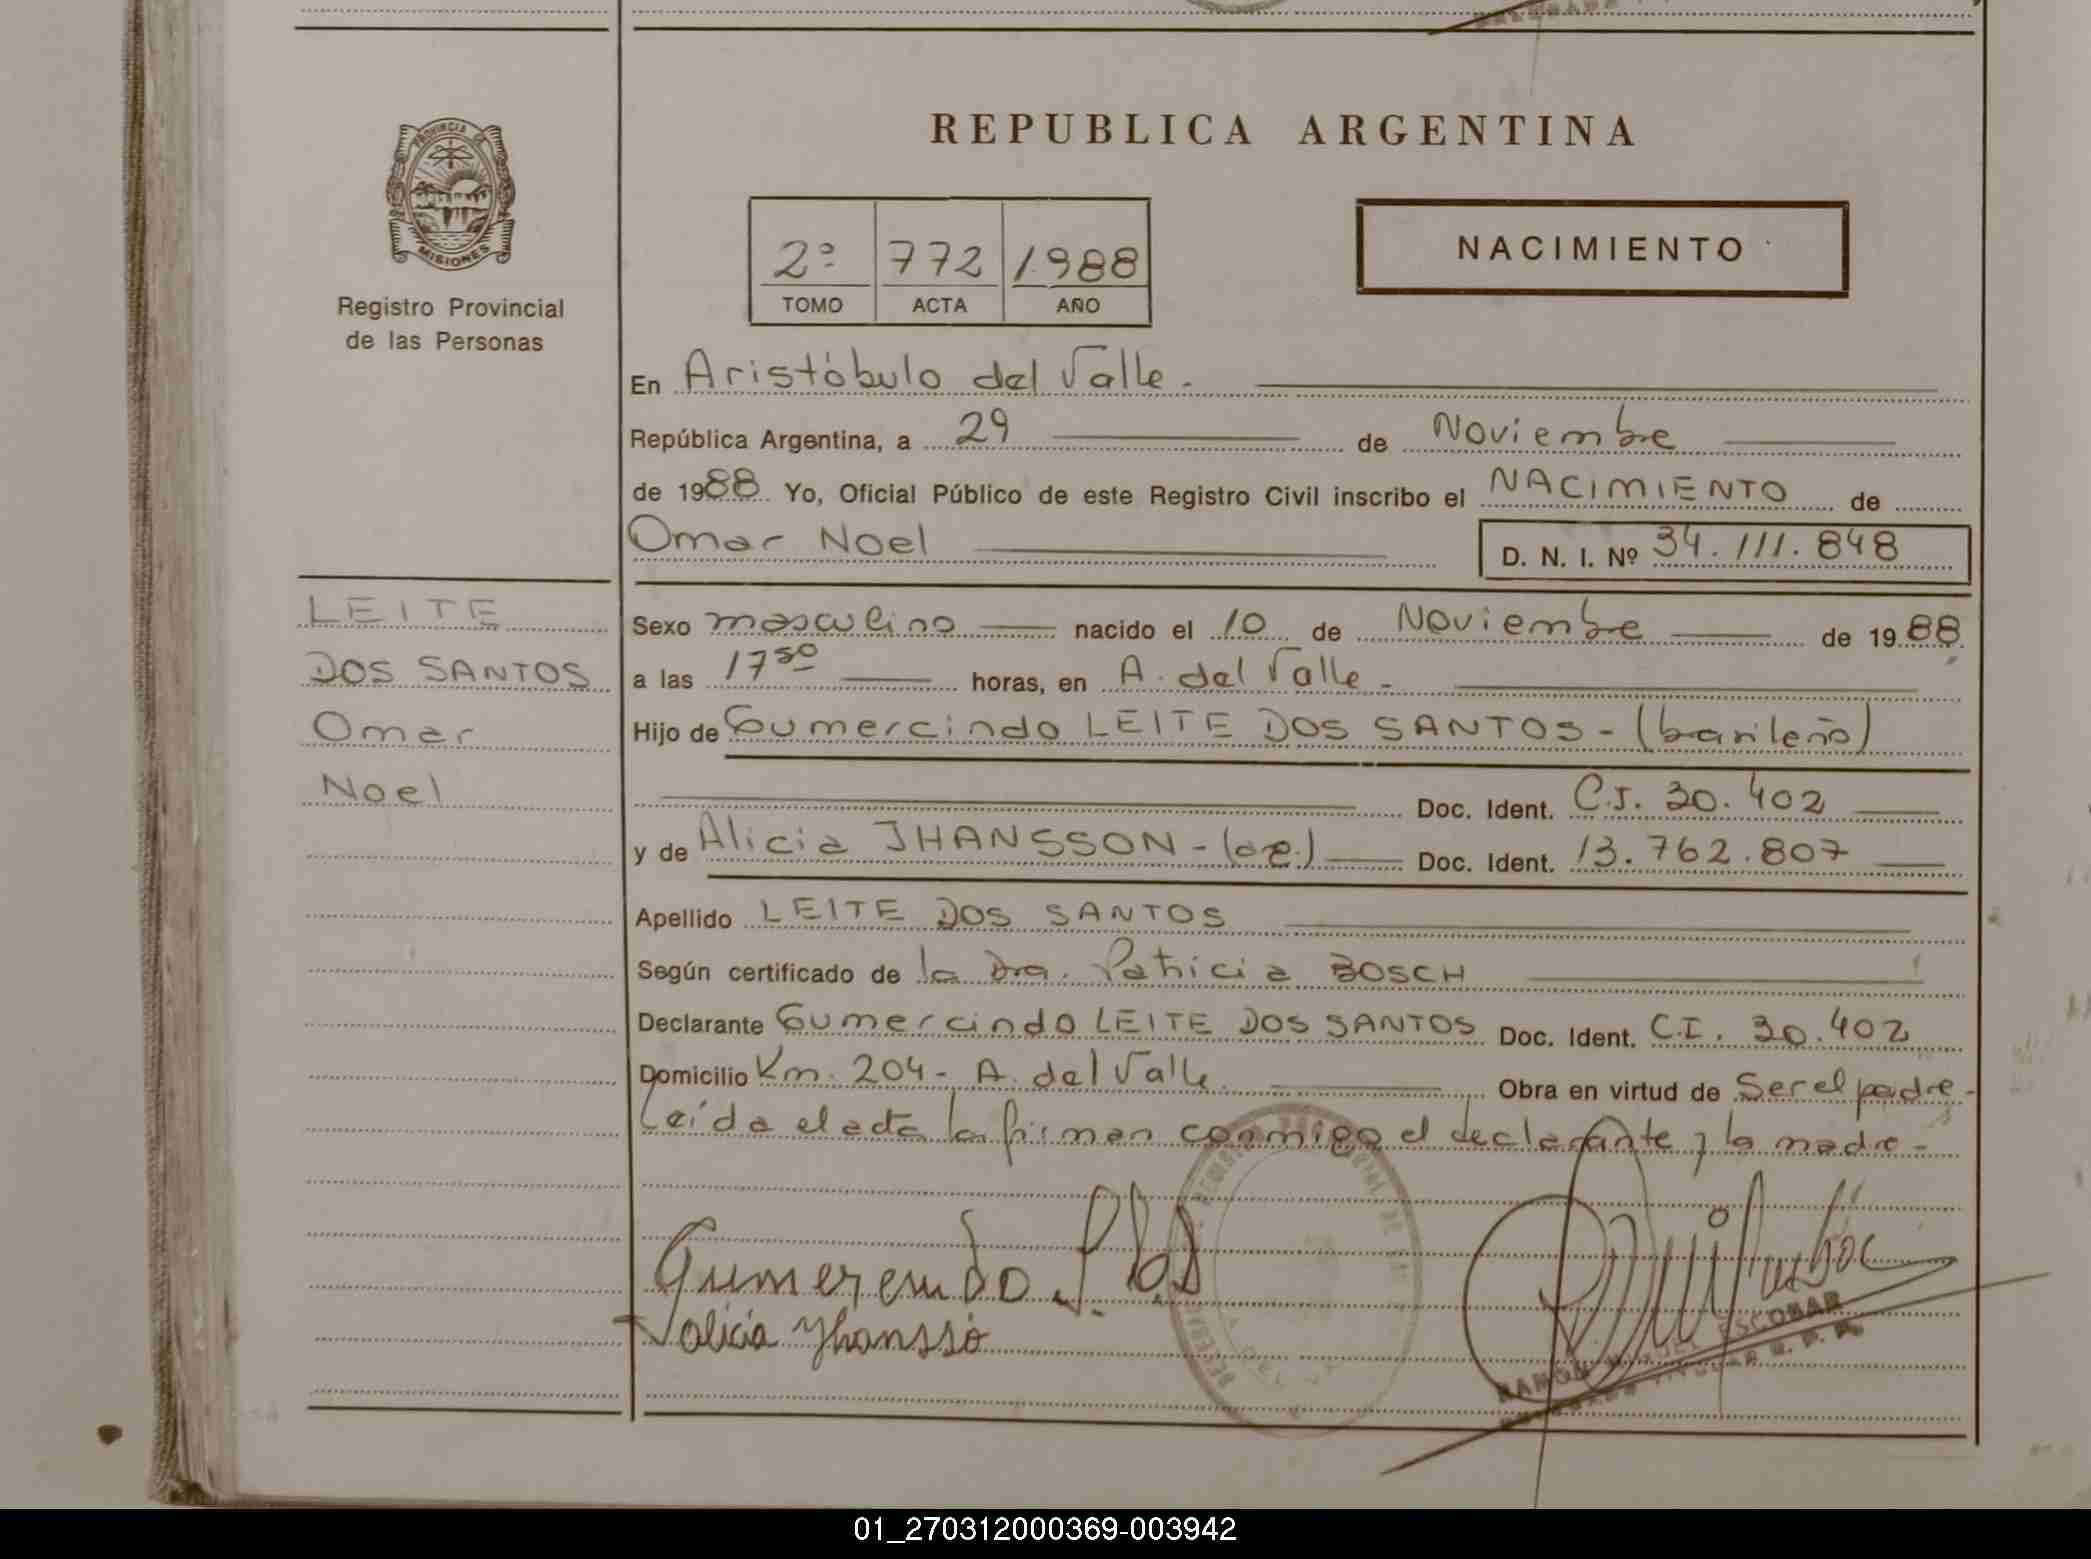 PROVINCIA DE
MISIONES
Registro Provincial
de las Personas
REPUBLICA ARGENTINA
2º 772 1988
TOMO ACTA AÑO
NACIMIENTO
En Aristóbulo del Valle.
República Argentina, a 29 de Noviembre
de 1988 Yo, Oficial Público de este Registro Civil inscribo el NACIMIENTO de
Omar Noel D. N. I. Nº 34.111.848
LEITE
DOS SANTOS
Omar
Noel
Sexo masculino nacido el 10 de Noviembre de 1988
a las 17 50 horas, en A. del Valle -
Hijo de Gumercindo LEITE DOS SANTOS - (brasileño)
Doc. Ident. C.I. 30.402
y de Alicia JHANSSON - Doc. Ident. 13.762.807
Apellido LEITE DOS SANTOS
Según certificado de la Dra. Patricia BOSCH
Declarante Gumercindo LEITE DOS SANTOS Doc. Ident. C.I. 30.402
Domicilio Km. 204 - A. del Valle. Obra en virtud de Ser el padre -
Leída el acta la firman conmigo el declarante y la madre -
Alicia Jhanssó
RAMON MIGUEL ESCOBAR
01_270312000369-003942